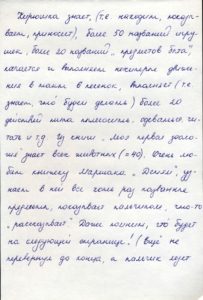 Кирюшка знает, (т.е. находит, показы-
вает, приносит), более 50 названий игру-
шек, более 20 названий "предметов быта"
качается и выполняет некоторые движе-
ния в такт в песенок, выполняет (т.е.
знает, что будем делать) более 20
действий типа полетели, одеваться, чи-
тать и т.д. Из книги "Моя первая зооло-
гия" знает всех животных (≈40). Очень лю-
бит книжку Маршака "Детки", уз-
нает в ней все после раз названные
предметы, показывает пальчиком, что-то
"рассказывает". Даже помнит, что будет
на следующей странице! (Ещё не
перевернул до конца, а пальчик лезет